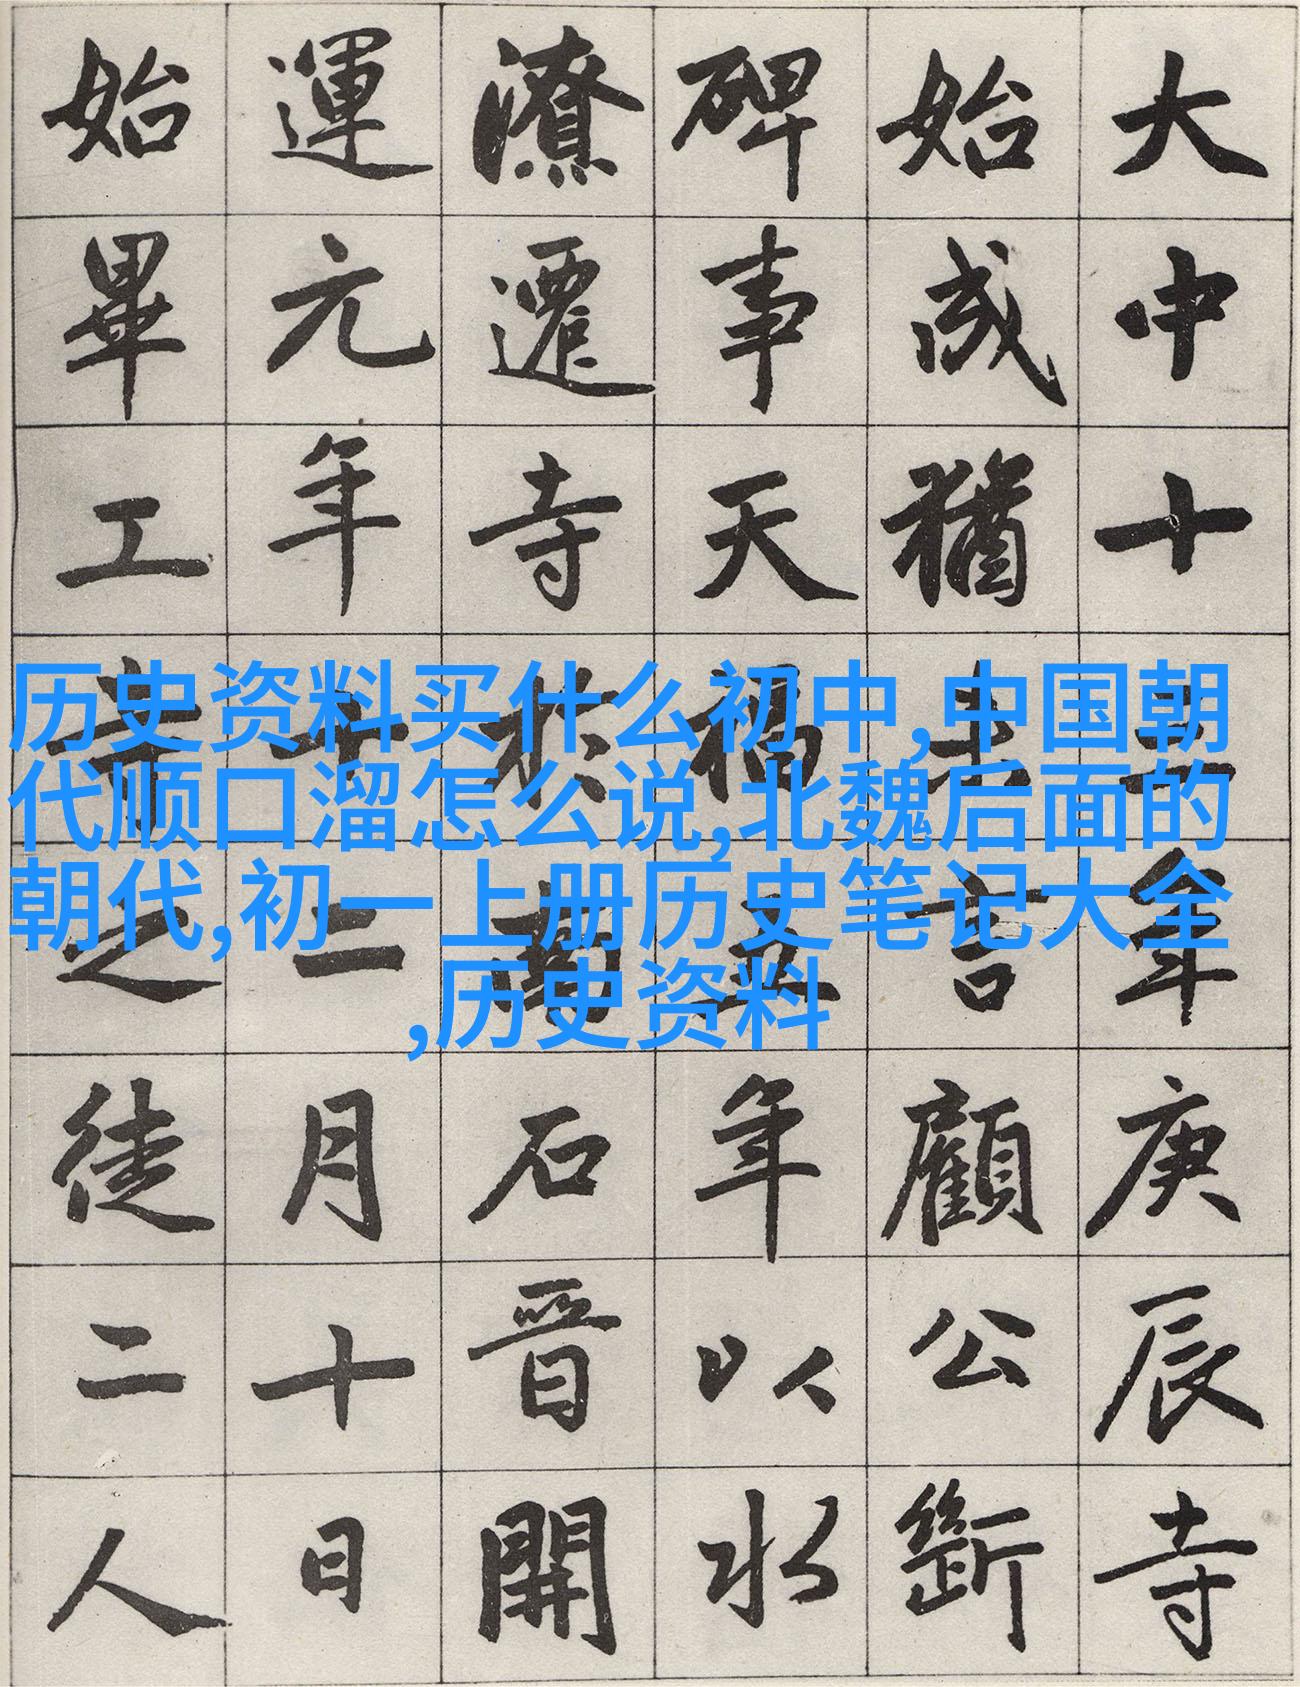 大中十三年庚辰寺
始成猶未言顧公斷
碑事天福五年以水
潦遷寺於南石晉開
運元年十二月十日
始畢工寺之徒二人
历史资料买什么初中,中国朝
代顺口溜怎么说,北魏后面的
朝代,初一上册历史笔记大全
,历史资料